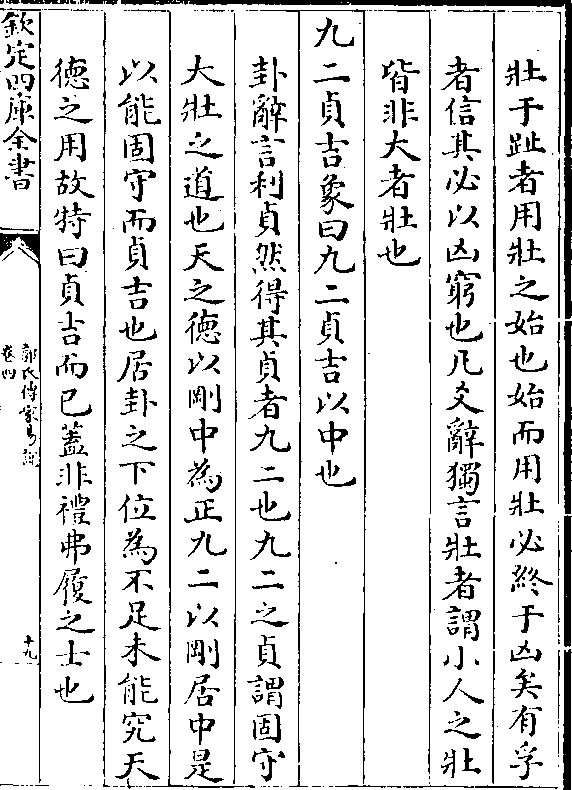 壯于趾者用壯之始也始而用壯必終于凶矣有孚
者信其必以凶窮也凡爻辭獨言壯者謂小人之壯
皆非大者壯也
九二貞吉象曰九二貞吉以中也
卦辭言利貞然得其貞者九二也九二之貞謂固守
大壯之道也天之德以剛中為正九二以剛居中是
以能固守而貞吉也居卦之下位為不足未能究天
德之用故特曰貞吉而已蓋非禮弗履之士也
欽定四庫全書
郭氏傳家易說
卷四
十九